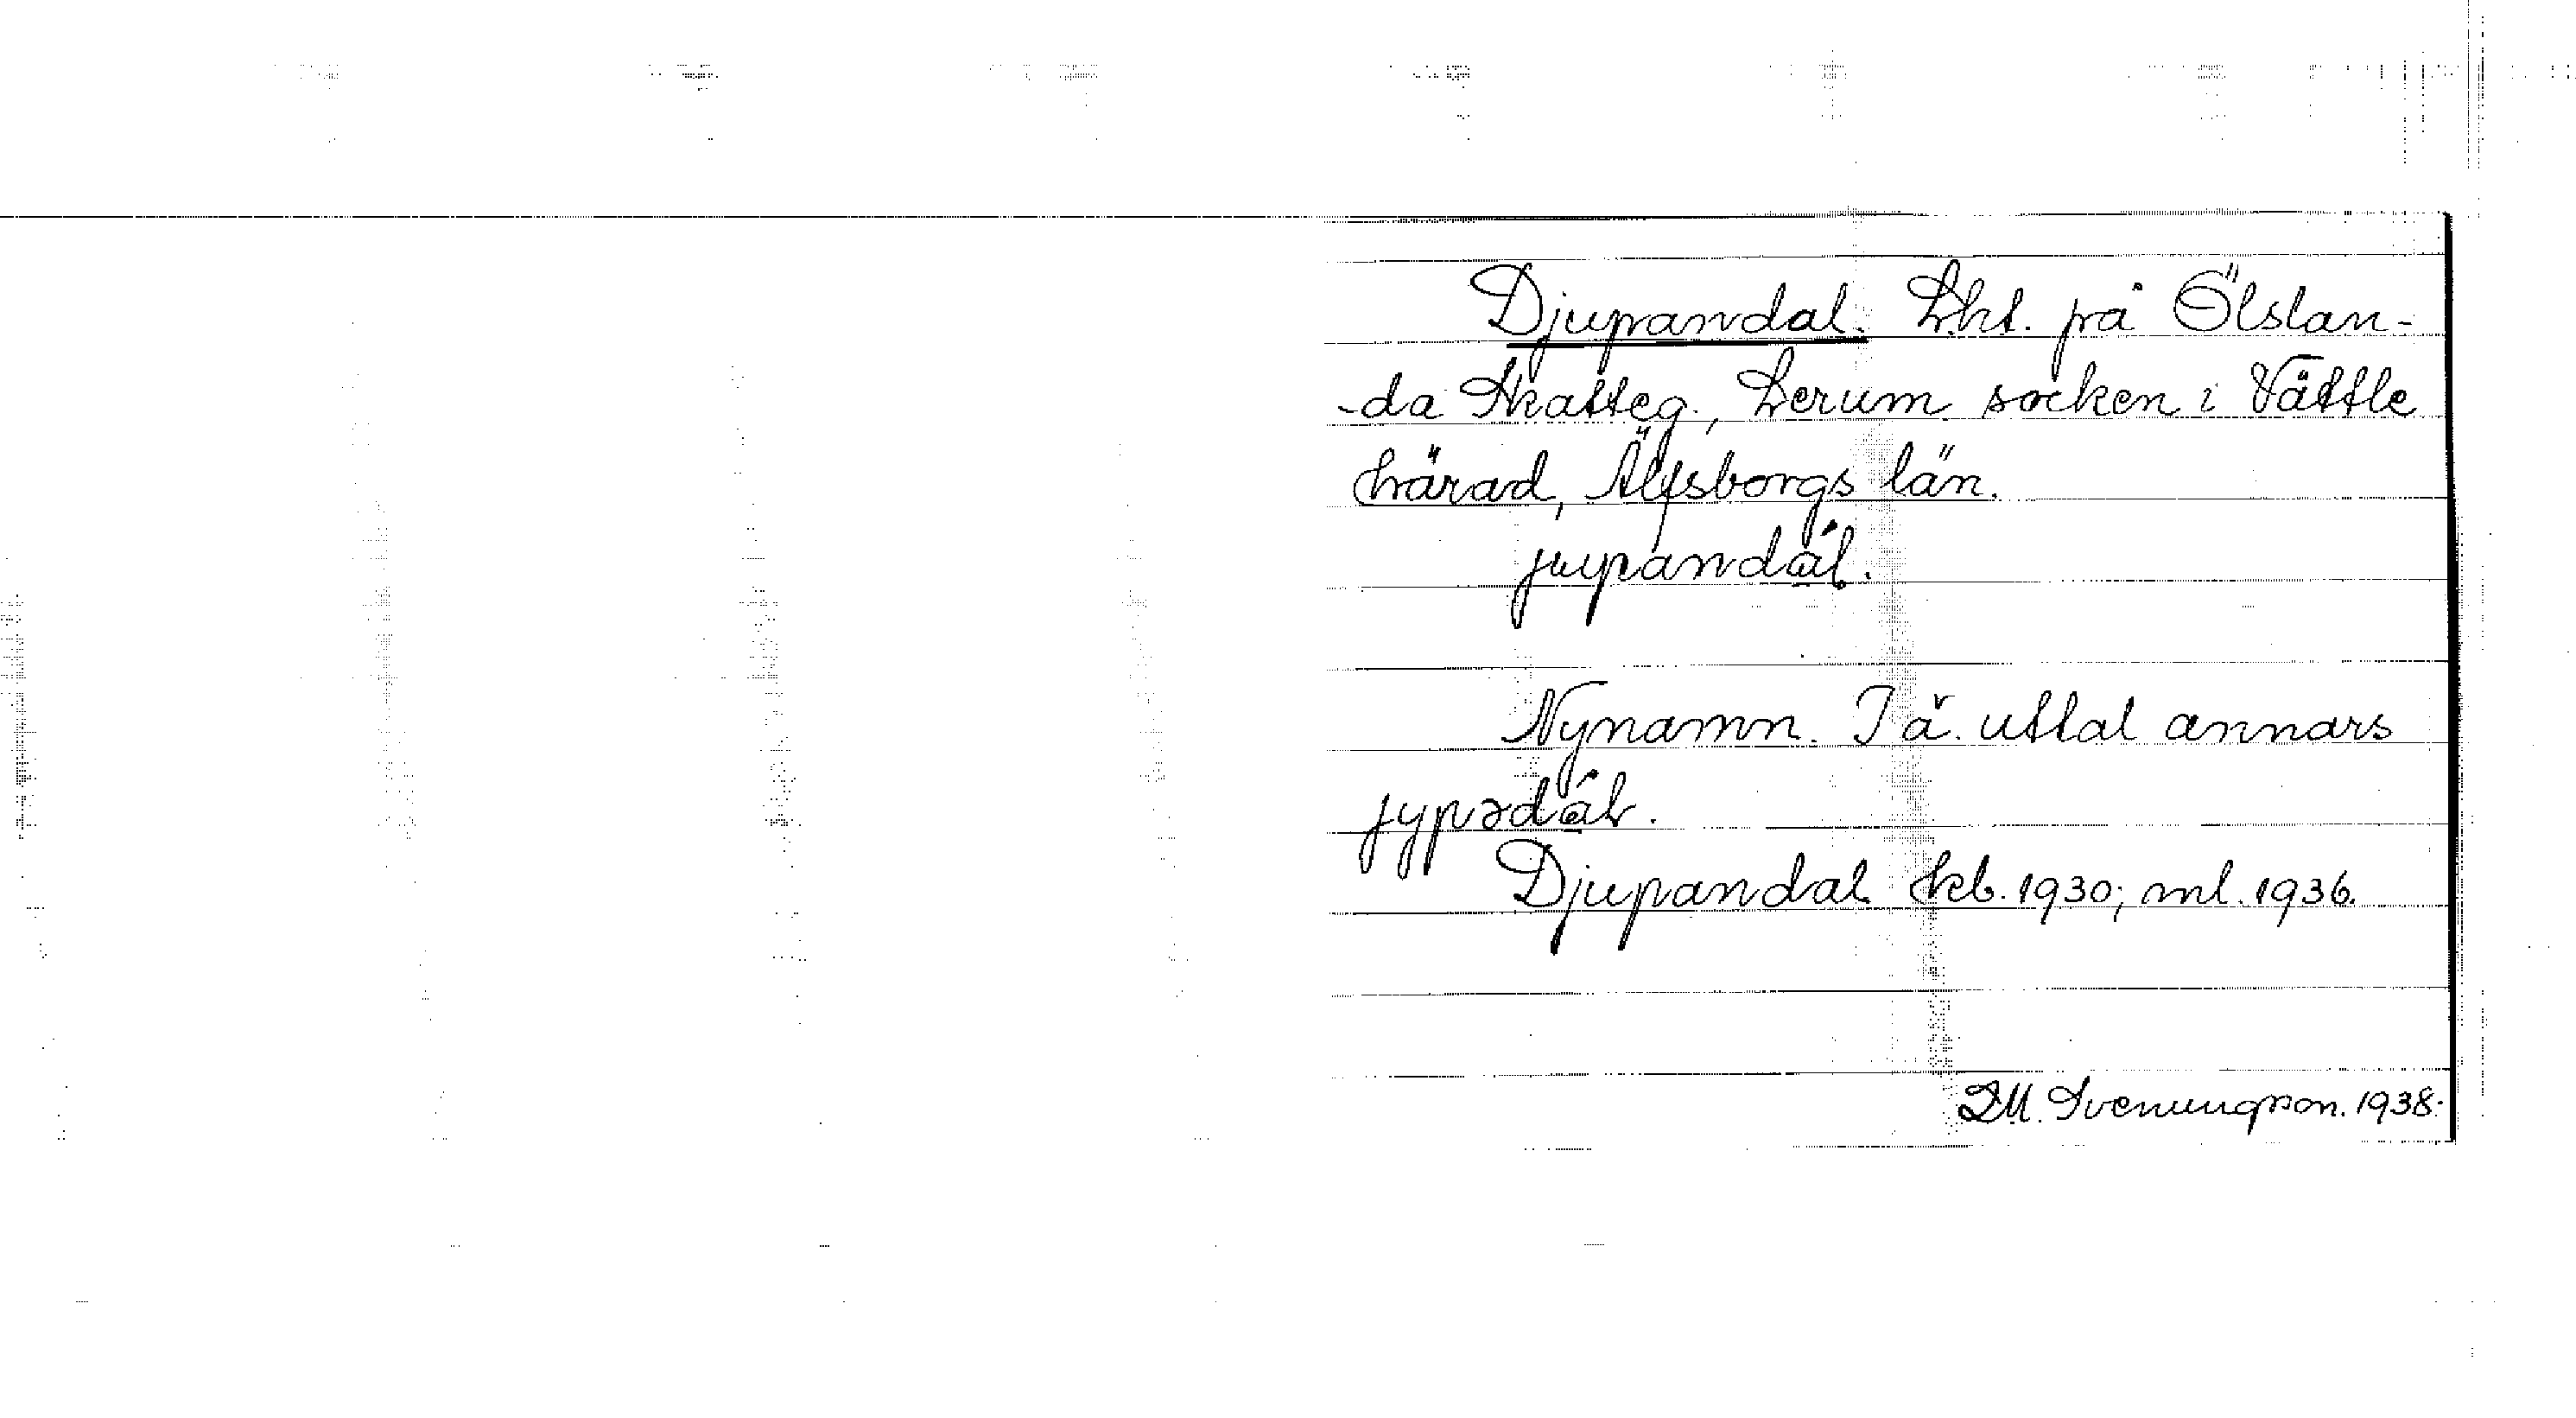 Djupandal. Lht. på Ölslan-
-da Skatteg., Lerum socken i Vättle
härad, Älfsborgs län.
jupandál.
Nynamn. I ä. uttal annars
jypədáL.
Djupandal kb. 1930; ml. 1936.
D.M. Svenungson. 1938.